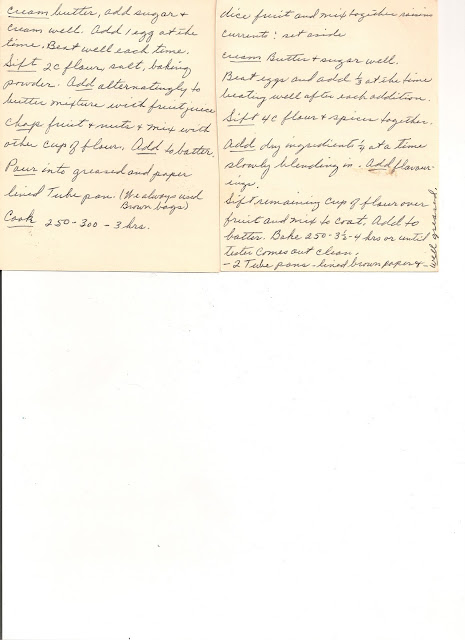 Cream butter, add sugar &
cream well. Add 1 egg at the
time. Beat well each time.
Sift 2c flour, salt, baking
powder. Add alternatingly to
butter mixture with fruit juice
Chop fruit & nuts & mix with
other cup of flour. Add to batter.
Pour into greased and paper
lined Tube pan. (We always used
Brown bags)
Cook 250-300 - 3 hrs.
dice fruit and mix together
currents: set aside
Cream Butter & sugar well.
Beat eggs and add 1/3 at the time
beating well after each addition.
Sift 4c flour & spices together.
Add dry ingredients at a time
slowly blending in. Add flavour-
ings.
Sift remaining cup of flour over
fruit and mix to coat. Add to
batter. Bake 250 - 3½-4 hrs or until
tester comes out clean.
- 2 Tube pans - lined brown paper & -
well greased.